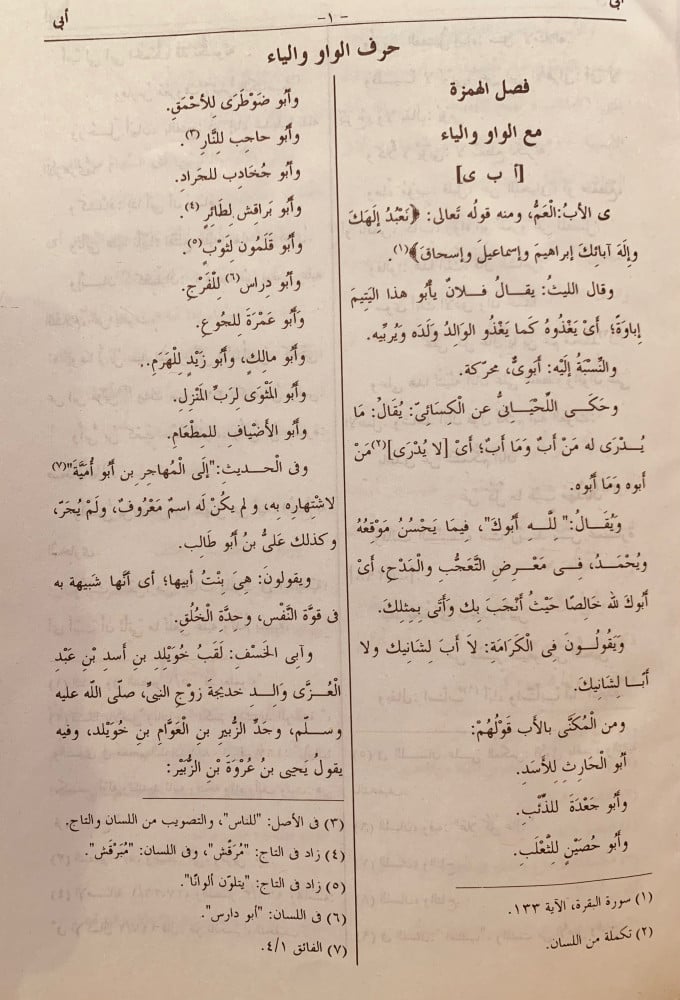 أبى
-١-
أبى
حرف الواو والياء
فصل الهمزة
مع الواو والياء
[أ ب ى]
ى الأبُ: العَمُّ، ومنه قولُه تَعالى: ﴿نَعْبُدُ إِلَهَكَ
وإِلَهَ آبائِكَ إبراهيمَ وإسماعيلَ وإسحاقَ﴾(١).
وقال الليثُ: يقالُ فلانٌ يأبُو هذا اليَتِيمَ
إباوَةً؛ أىْ يَغْذُوهُ كَما يَغْذُو الوالِدُ ولَدَه ويُربِّيه.
والنِّسْبَةُ إلَيْه: أبَوِىٌّ، محرّكة.
وحَكَـى اللِّحْيَانِـىُّ عن الكِسَائِىِّ: يُقَالُ: مَا
يُـدْرَى له مَنْ أبٌ وَمَا أبٌ؛ أىْ [لا يُدْرَى](٢) مَنْ
أبوه وَمَا أبُوه.
ويُقَـالُ: "للَّـهِ أبُوكَ"، فِيمَا يَحْسُنُ مَوْقِعُهُ
ويُحْمَـدُ، فِـى مَعْـرِضِ التَّعَجُّبِ والْمَدْحِ، أىْ
أبُوكَ لله خَالِصًا حَيْثُ أنْجَبَ بِك وَأتَى بِمِثلِكَ.
وَيَقُولُـونَ فِى الْكَرَامَةِ: لاَ أبَ لِشَانِيك ولا
أبَـا لِشَانِيكَ.
ومن الْمُكَنَّى بالأب قَوْلُهُمْ:
أبُو الْحَارِثِ لِلأسَدِ.
وأبُو جَعْدَةَ للذِّئْبِ.
وأبُو حُصَيْنٍ لِلثَّعْلَبِ.
(١) سورة البقرة، الآية ١٣٣.
(٢) تكملة من اللسان.
وأبُو ضَوْطَرَى لِلأحْمَقِ.
وأبُو حاجِب لِلنَّارِ(٣).
وأبُو جُخَادِب للجَرادِ.
وأبُو بَراقِش لِطَائِرٍ(٤).
وأبُو قَلَمُون لِثَوْبٍ(٥).
وأبُو دِراس(٦) لِلْفَرْجِ.
وَأبُو عَمْرَةَ لِلجُوعِ.
وأبُو مالِكٍ، وأبُو زَيْدٍ لِلْهَرَمِ..
وأبُو الْمَثْوَى لِرَبِّ الْمَنْزِلِ.
وأبُو الأضْيافِ للمِطْعَامِ.
وفى الْحديثِ: "إلَى الْمُهاجِرِ بن أبُو أُمَيَّةَ"(٧)
لاشْتِهارِه بِه، و لم يكُنْ لَه اسمٌ مَعْرُوفٌ، ولَمْ يُجَرّ،
وكذلك عَلىُّ بنُ أبُو طَالِب.
ويقولونَ: هِىَ بِنْتُ أبيها؛ أى أنَّها شَبِيهة به
فى قوَّة النَّفْس، وحِدَّةِ الْخُلُقِ.
وآبى الخَسْف: لَقَبُ خُوَيْلِد بنِ أسدِ بْنِ عَبْدِ
الْعُـزَّى وَالِـدِ خديجةَ زوْجِ النبىِّ، صلّى اللّه عليه
وسـلّم، وجَـدِّ الزُّبيرِ بنِ الْعَوَّامِ بنِ خُوَيْلد، وفيه
يقولُ يَحيى بنُ عُرْوَةَ بْنِ الزُّبَيْر:
(٣) فى الأصل: "للناس"، والتصويب من اللسان والتاج.
(٤) زاد فى التاج: "مُرَقّش"، وفى اللسان: "مُبَرْقَش".
(٥) زاد فى التاج: "يتلوّن ألوانًا".
(٦) فى اللسان: "أبو دارس".
(٧) الفائق ٤/١.